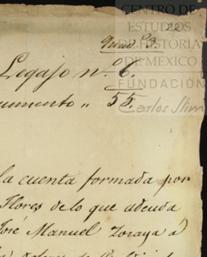 CENTRO DE
ESTUDIOS
DE HISTORIA
DE MÉXICO
FUNDACIÓN
Carlos Slim
Legajo n.º 6.
cumento " 55.
la cuenta formada por
Flores de lo que adeuda
José Manuel Zozaya á